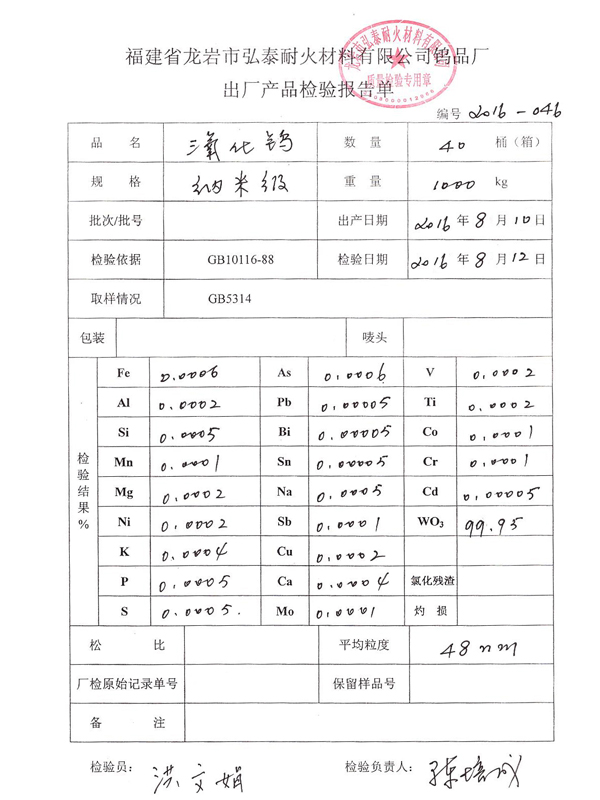 福建省龙岩市弘泰耐火材料有限公司钨品厂
出厂产品检验报告单
质量检验专用章
编号 2016-046
品 名 三氧化钨 数 量 40 桶（箱）
规 格 纳米级 重 量 1000 kg
批次/批号 出产日期 2016 年 8 月 10 日
检验依据 GB10116-88 检验日期 2016 年 8 月 12 日
取样情况 GB5314
包装 唛头
检验结果%
Fe 0.0006 As 0.0006 V 0.0002
Al 0.0002 Pb 0.00005 Ti 0.0002
Si 0.0005 Bi 0.00005 Co 0.0001
Mn 0.0001 Sn 0.00005 Cr 0.0001
Mg 0.0002 Na 0.0005 Cd 0.00005
Ni 0.0002 Sb 0.0001 WO₃ 99.95
K 0.0004 Cu 0.0002
P 0.0005 Ca 0.0004 氯化残渣
S 0.0005. Mo 0.0001 灼 损
松 比 平均粒度 48nm
厂检原始记录单号 保留样品号
备 注
检验员： 洪文娟 检验负责人： 陈培成